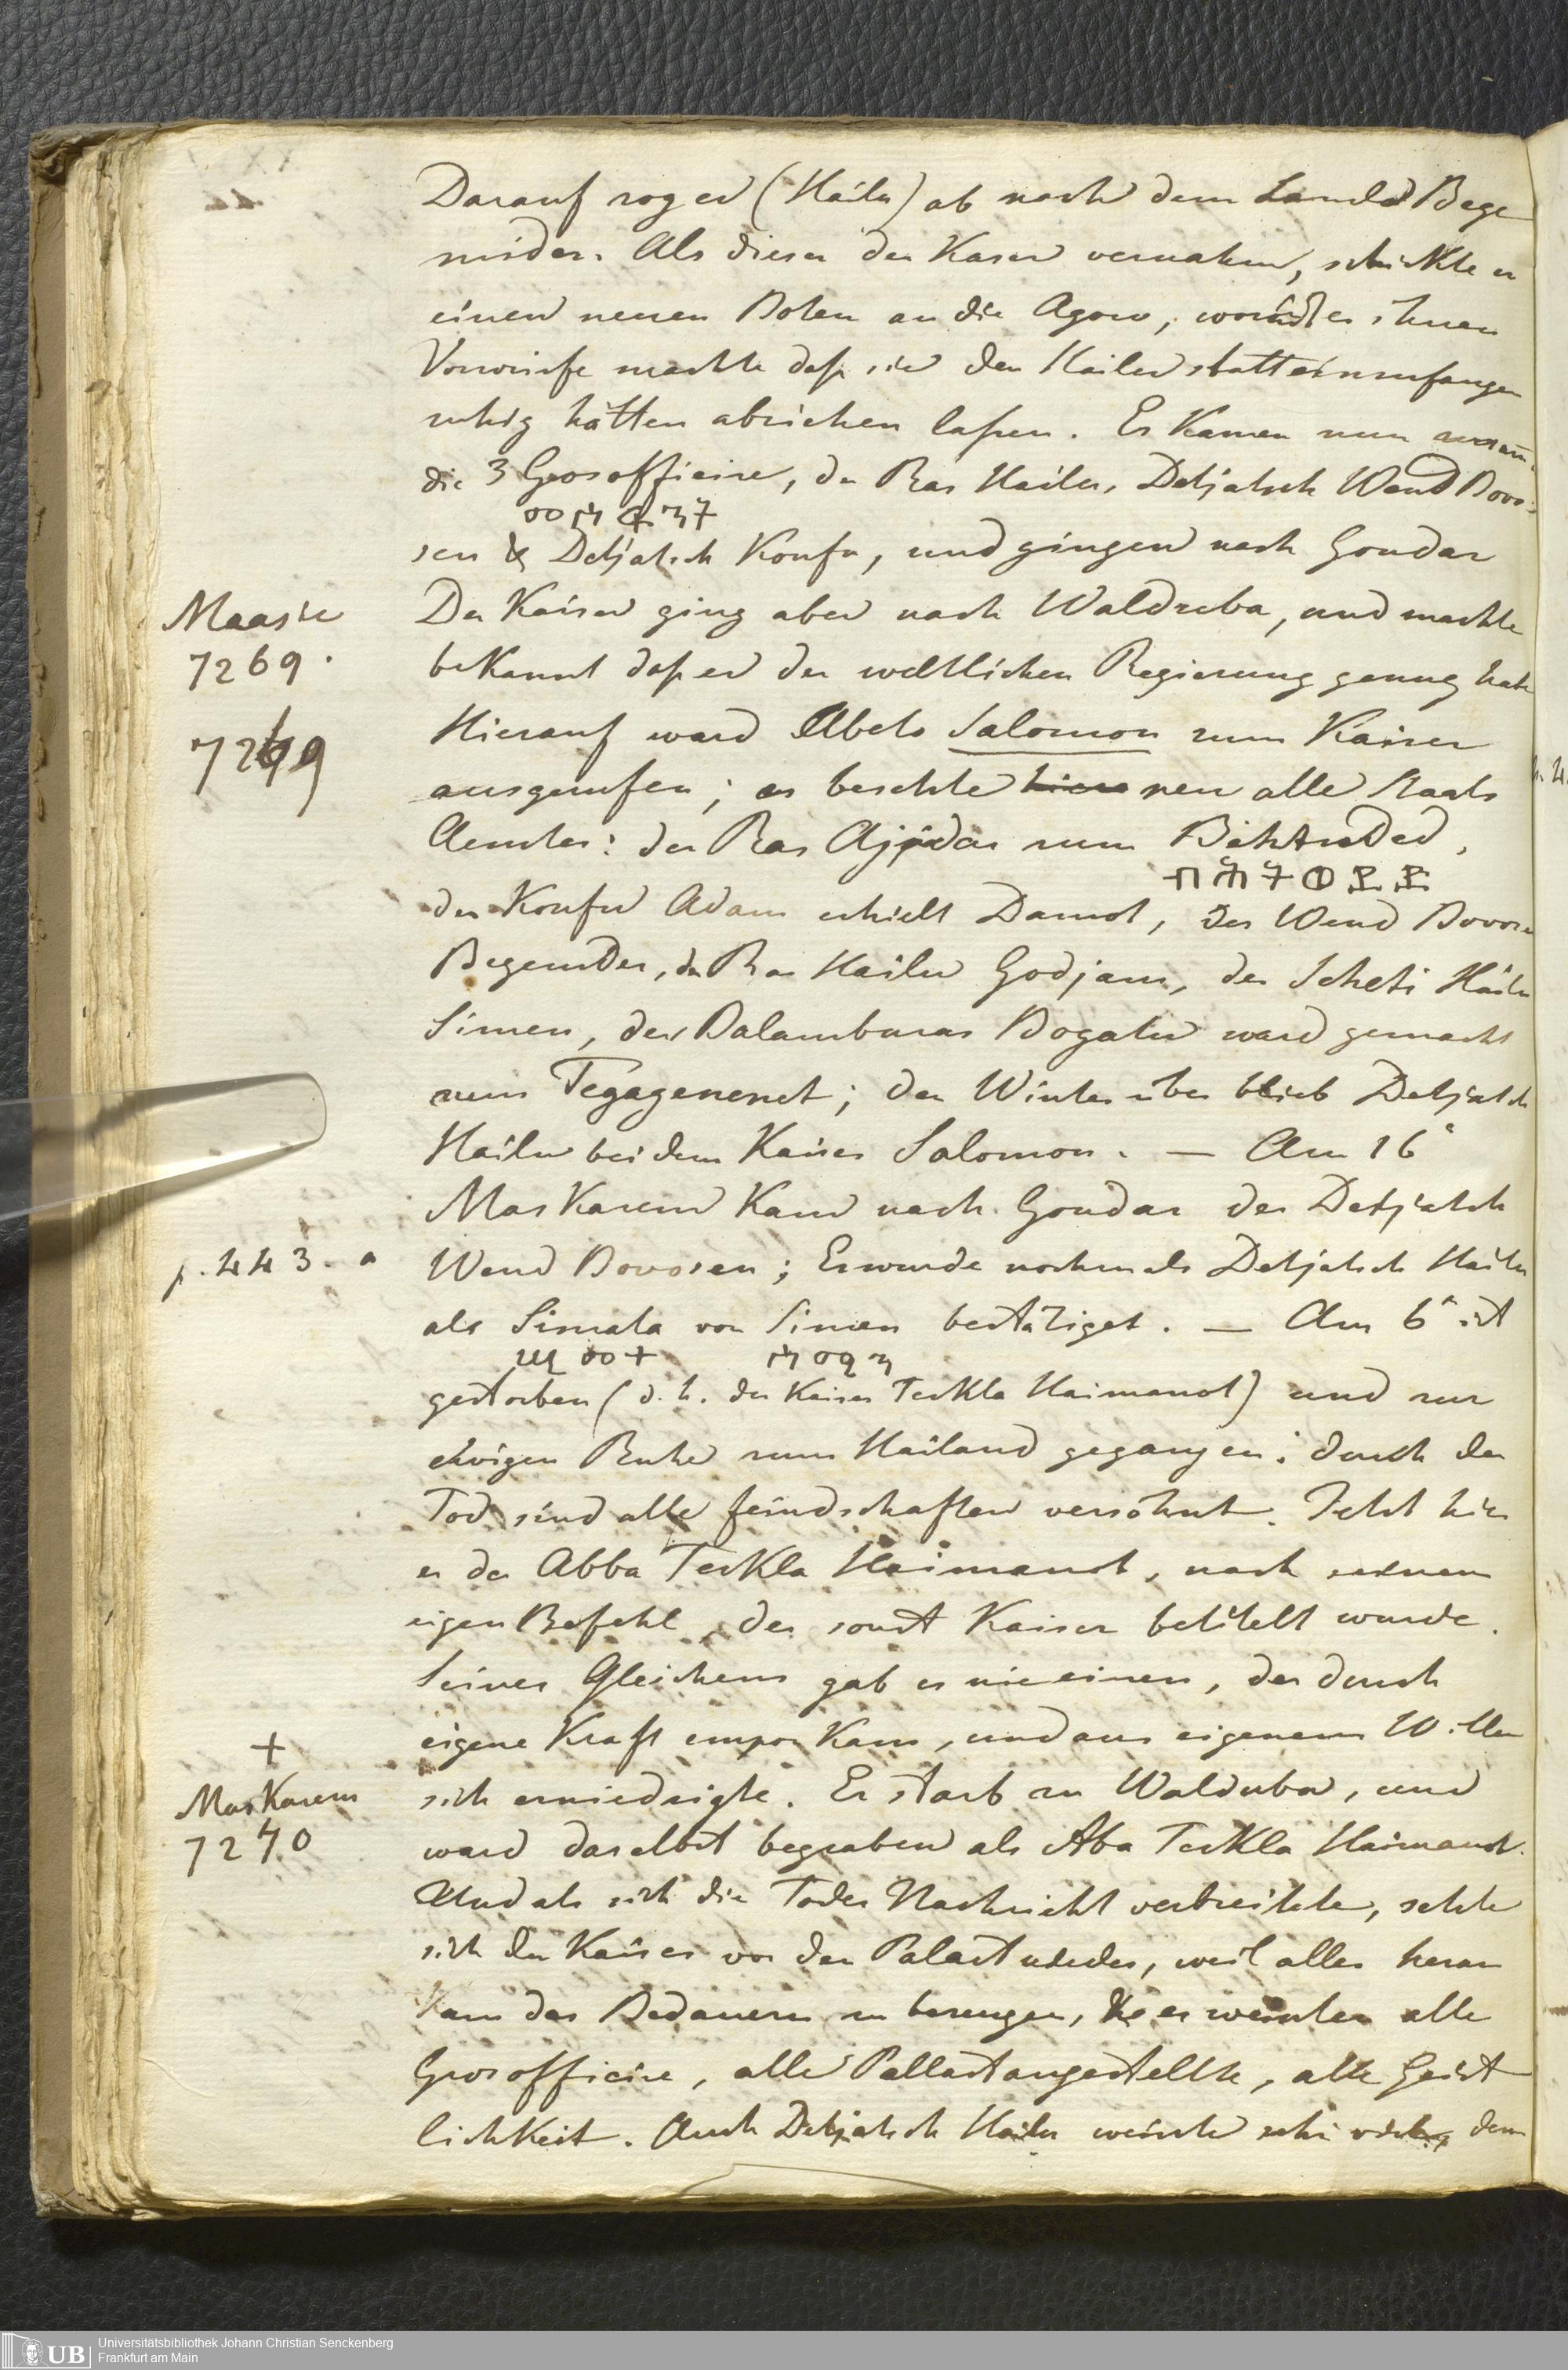 Darauf zog er (Hailu) ab nach dem Lande Bege
mider. Als dieses der Kaser vernahm, schickte er
einen neuen Boten an die Agow, worinder ihnen
Vorwürfe machte daß sie den Hailu statt einzufangen
ruhig hätten abziehen laßen. Es kamen nun zusam̄
die 3 Grosofficire, der Ras Hailu, Detjatsch Wend Bovos
መኳንንት
sen & Detjatsch Konfu, und gingen nach Gondar
Maasie
7269.
Der Kaiser ging aber nach Waldubba, und machte
bekannt daß er der weltlichen Regierung genug habe
7269
Hierauf ward Abeto Salomon zum Kaiser
ausgerufen; er besetzte neu alle Staats
Aemter: der Ras Ajadar zum Bihtwded,
ቢትወደድ
der Konfu Adam erhielt Damot, der Wend Bovosen
Begemder, der Ras Hailu Godjam, der Scheti Hailu
Simen, der Balambaras Bogalu ward gemacht
zum Tegagenenet; den Winter über blieb Detjatsch
Hailu bei dem Kaiser Salomon. — Am 16ᵗ
Maskarem kam nach Gondar der Detjatsch
p. 443. a
Wend Bovosen; Es wurde nochmals Detjatsch Hailu
als Simata von Simen bestätiget. — Am 6ᵗ ist
ሹመት ሰሜን
gestorben (d. h. der Kaiser Teckla Haimanot) und zur
ewigen Ruhe zum Hailand gegangen; durch den
Tod sind alle feindschaften versöhnt. Jetzt hies
er der Abba Teckla Haimanot, nach seinem
eigen Befehl, der sonst Kaiser betitelt wurde.
Seines Gleichens gab es nie einen, der durch
eigene Kraft empor kam, und aus eigenem Willen
+
Maskarem
7270
sich erniedrigte. Er starb zu Waldubba, und
ward daselbst begraben als Aba Teckla Haimanot.
Und als sich die Todes Nachricht verbreitete, setzte
sich der Kaiser vor den Palast nieder, weil alles heran
kam das Bedauern zu bezeugen, es weinten alle
Grosofficire, alle Pallastangestellte, alle Geist
lichkeit. Auch Detjatsch Hailu weinte sehr denn
Universitätsbibliothek Johann Christian Senckenberg
Frankfurt am Main
UB